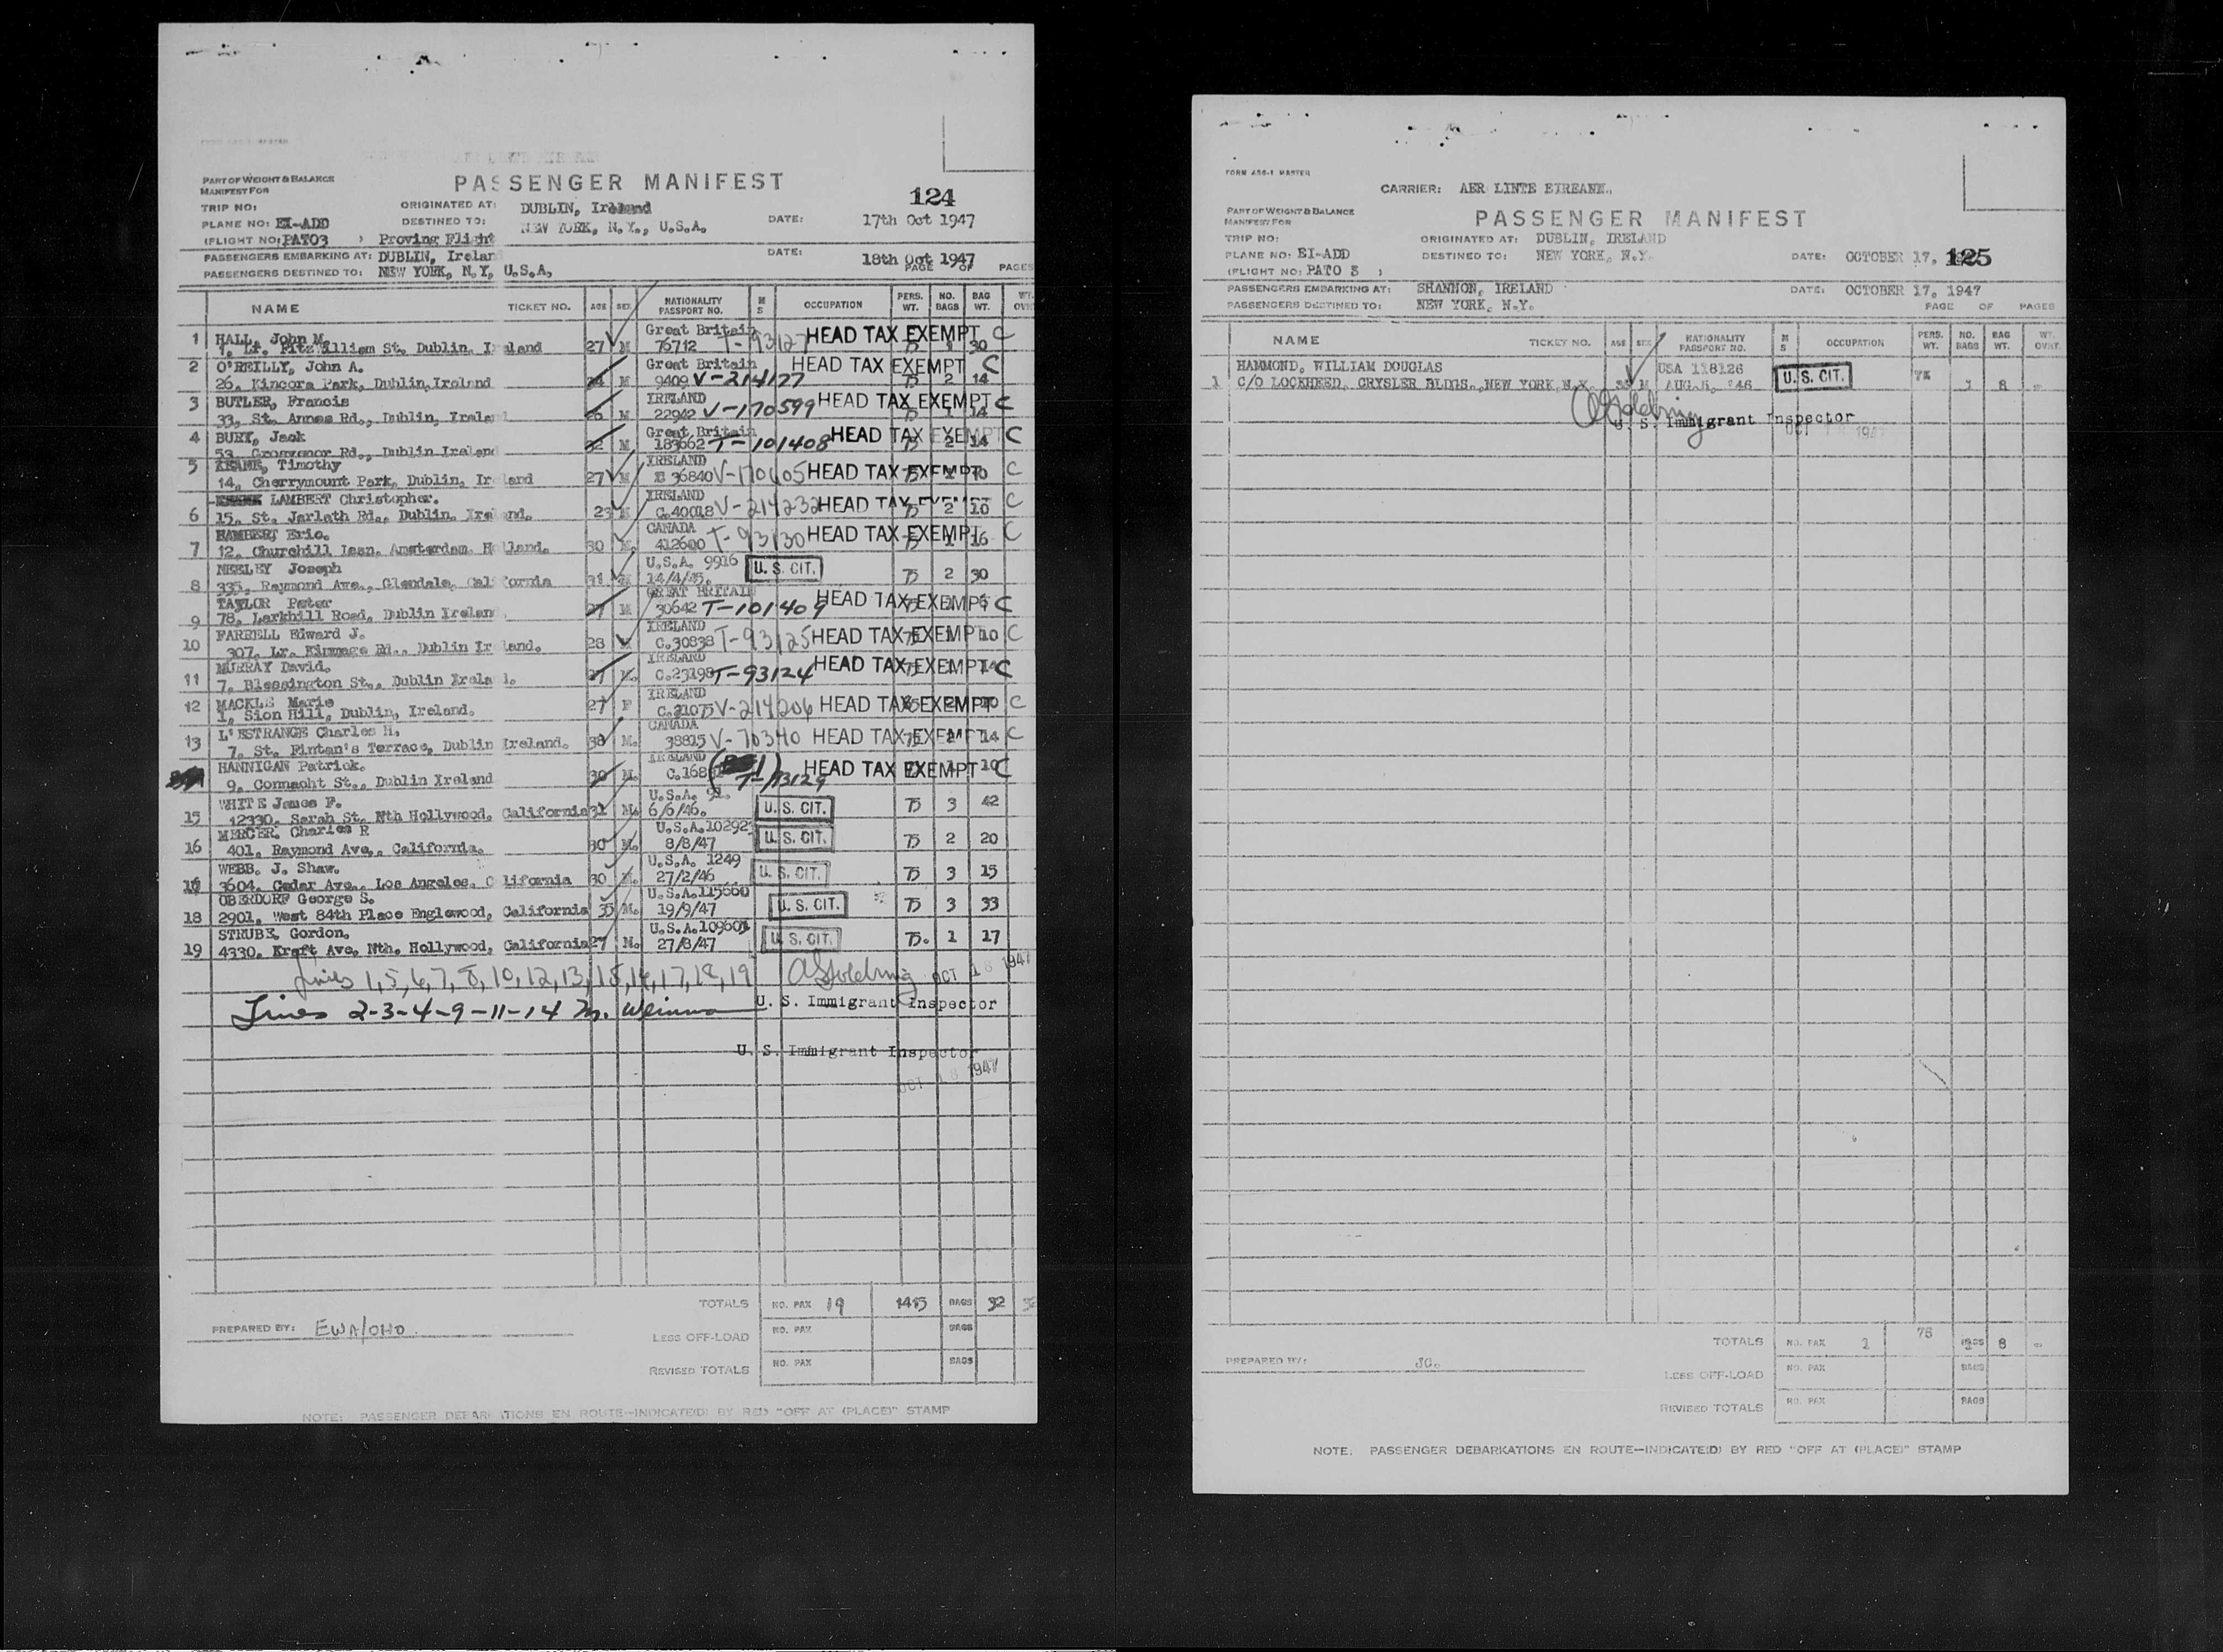 PART OF WEIGHT & BALANCE
MANIFEST FOR
PASSENGER MANIFEST
124
TRIP NO:
ORIGINATED AT: DUBLIN, Ireland
PLANE NO: EI-ADD
DESTINED TO: NEW YORK, N.Y., U.S.A.
DATE: 17th Oct 1947
(FLIGHT NO: PATO3 ) Proving Flight
PASSENGERS EMBARKING AT: DUBLIN, Ireland
DATE: 18th Oct 1947
PASSENGERS DESTINED TO: NEW YORK, N.Y. U.S.A.
PAGE OF PAGES
NAME TICKET NO. AGE SEX NATIONALITY PASSPORT NO. M S OCCUPATION PERS. WT. NO. BAGS BAG WT. WT.
1 HALL, John M. Great Britain HEAD TAX EXEMPT C
1, Lr. Fitzwilliam St. Dublin, Ireland 27 M 76712 T-93127 75 30
2 O'REILLY, John A. Great Britain HEAD TAX EXEMPT C
26, Kincora Park, Dublin, Ireland M 9409 V-214127 75 2 14
3 BUTLER, Francis IRELAND HEAD TAX EXEMPT C
33, St. Annes Rd., Dublin, Ireland 26 M 22942 V-170599 75 1 14
4 BURY, Jack Great Britain HEAD TAX EXEMPT C
53, Grosvenor Rd., Dublin Ireland M 183662 T-101408 75 2 14
5 KEANE, Timothy IRELAND HEAD TAX EXEMPT C
14, Cherrymount Park, Dublin, Ireland 27 M E 36840 V-170605 75 10
LAMBERT Christopher. IRELAND HEAD TAX EXEMPT C
6 15, St. Jarlath Rd., Dublin, Ireland. 23 M C.40018 V-214232 75 2 10
Eric. CANADA HEAD TAX EXEMPT C
7 12, Churchill Laan, Amsterdam, Holland. 30 M. 412600 T-93130 75 16
NEELEY Joseph U.S.A. 9916 U. S. CIT.
8 335, Raymond Ave., Glendale, California 31 M 14/4/45. 75 2 30
TAYLOR Peter GREAT BRITAIN HEAD TAX EXEMPT C
9 78, Larkhill Road, Dublin Ireland. 27 M 30642 T-101409
FARRELL Edward J. IRELAND HEAD TAX EXEMPT C
10 307, Lr. Kimmage Rd., Dublin Ireland. 28 M C.30838 T-93125 10
MURRAY David. IRELAND HEAD TAX EXEMPT C
11 7, Blessington St., Dublin Ireland. 27 M. C.23198 T-93124 14
12 MACKLE Marie IRELAND HEAD TAX EXEMPT C
1, Sion Hill, Dublin, Ireland. 27 F C.21075 V-214206
L'ESTRANGE Charles H. CANADA HEAD TAX EXEMPT C
13 7, St. Fintan's Terrace, Dublin Ireland. 38 M. 38815 V-70340 14
HANNIGAN Patrick. IRELAND HEAD TAX EXEMPT C
9, Connaught St., Dublin Ireland 30 M. T-93129 10
WHITE James F. U.S.A. U. S. CIT.
15 12330, Sarah St. Nth Hollywood, California 31 M. 6/6/46. 75 3 42
MERCER, Charles R U.S.A. 10292 U. S. CIT.
16 401, Raymond Ave., California. 30 M. 8/8/47 75 2 20
WEBB. J. Shaw. U.S.A. 1249 U. S. CIT.
17 3604, Cedar Ave., Los Angeles, California 30 M. 27/2/46 75 3 15
OBERDORF George S. U.S.A. 115660 U. S. CIT.
18 2901, West 84th Place Englewood, California 35 M. 19/9/47 75 3 33
STRUBE, Gordon. U.S.A. U. S. CIT.
19 4330, Kraft Ave, Nth. Hollywood, California 27 M. 27/8/47 75. 1 17
Lines 1,5,6,7,8,10,12,13,15,16,17,18,19 OCT 18 1947
U. S. Immigrant Inspector
Lines 2-3-4-9-11-14
U. S. Immigrant Inspector
OCT 18 1947
TOTALS NO. PAX 19 BAGS 32
PREPARED BY: EWA/OHO
LESS OFF-LOAD NO. PAX BAGS
REVISED TOTALS NO. PAX BAGS
NOTE: PASSENGER DEBARKATIONS EN ROUTE—INDICATE(D) BY RED "OFF AT (PLACE)" STAMP
FORM ABS-1 MASTER
CARRIER: AER LINTE EIREANN.
PART OF WEIGHT & BALANCE
MANIFEST FOR
PASSENGER MANIFEST
TRIP NO:
ORIGINATED AT: DUBLIN, IRELAND
PLANE NO: EI-ADD
DESTINED TO: NEW YORK, N.Y.
DATE: OCTOBER 17, 125
(FLIGHT NO: PATO 3 )
PASSENGERS EMBARKING AT: SHANNON, IRELAND
DATE: OCTOBER 17, 1947
PASSENGERS DESTINED TO: NEW YORK, N.Y.
PAGE OF PAGES
NAME TICKET NO. AGE SEX NATIONALITY PASSPORT NO. M S OCCUPATION PERS. WT. NO. BAGS BAG WT. WT. OVNT.
HAMMOND, WILLIAM DOUGLAS USA 118126 U. S. CIT.
1 C/O LOCKHEED, CRYSLER BLDNG., NEW YORK, N.Y. M 1 8
U. S. Immigrant Inspector
OCT 18 1947
TOTALS NO. PAX 1 75 BAGS 8
PREPARED BY: JC.
LESS OFF-LOAD NO. PAX BAGS
REVISED TOTALS NO. PAX BAGS
NOTE: PASSENGER DEBARKATIONS EN ROUTE—INDICATE(D) BY RED "OFF AT (PLACE)" STAMP